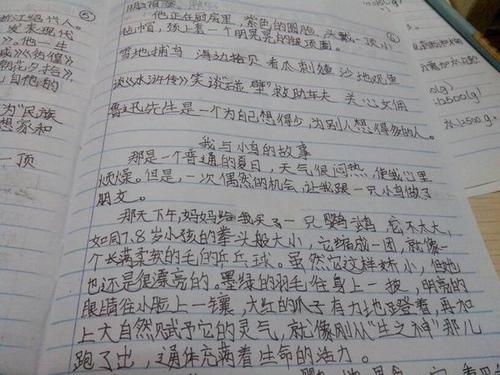 浙江绍兴人。
发表现代
》。他一生
成《彷徨》
朝花夕拾》
自他的
为"民族
想家和
一顶
⑤
他正在厨房里，紫色的圆脸，头戴一顶小
毡帽，颈上套一个明晃晃的银项圈。
⑥
雪地捕鸟 海边拾贝 看瓜刺猹 沙地观鱼
谈《水浒传》 笑谈"碰壁" 救助车夫 关心女佣
鲁迅先生是一个为自己想得少，为别人想得多的人。
我与小鸟的故事
那是一个普通的夏日，天气很闷热，使我心里
烦燥。但是，一次偶然的机会，让我跟一只小鸟做了
朋友。
那天下午，妈妈给我买了一只鹦鹉，它不太大，
如同7、8岁小孩的拳头般大小，它缩成一团，就像一
个长满柔软的毛的乒乓球。虽然它这样娇小，但她
也还是很漂亮的。墨绿的羽毛往身上一披，明亮的
眼睛往小脸上一镶，火红的爪子有力地蹬着，再加
上大自然赋予它的灵气，就像刚从"生之神"那儿
跑了出，通体充满着生命的活力。